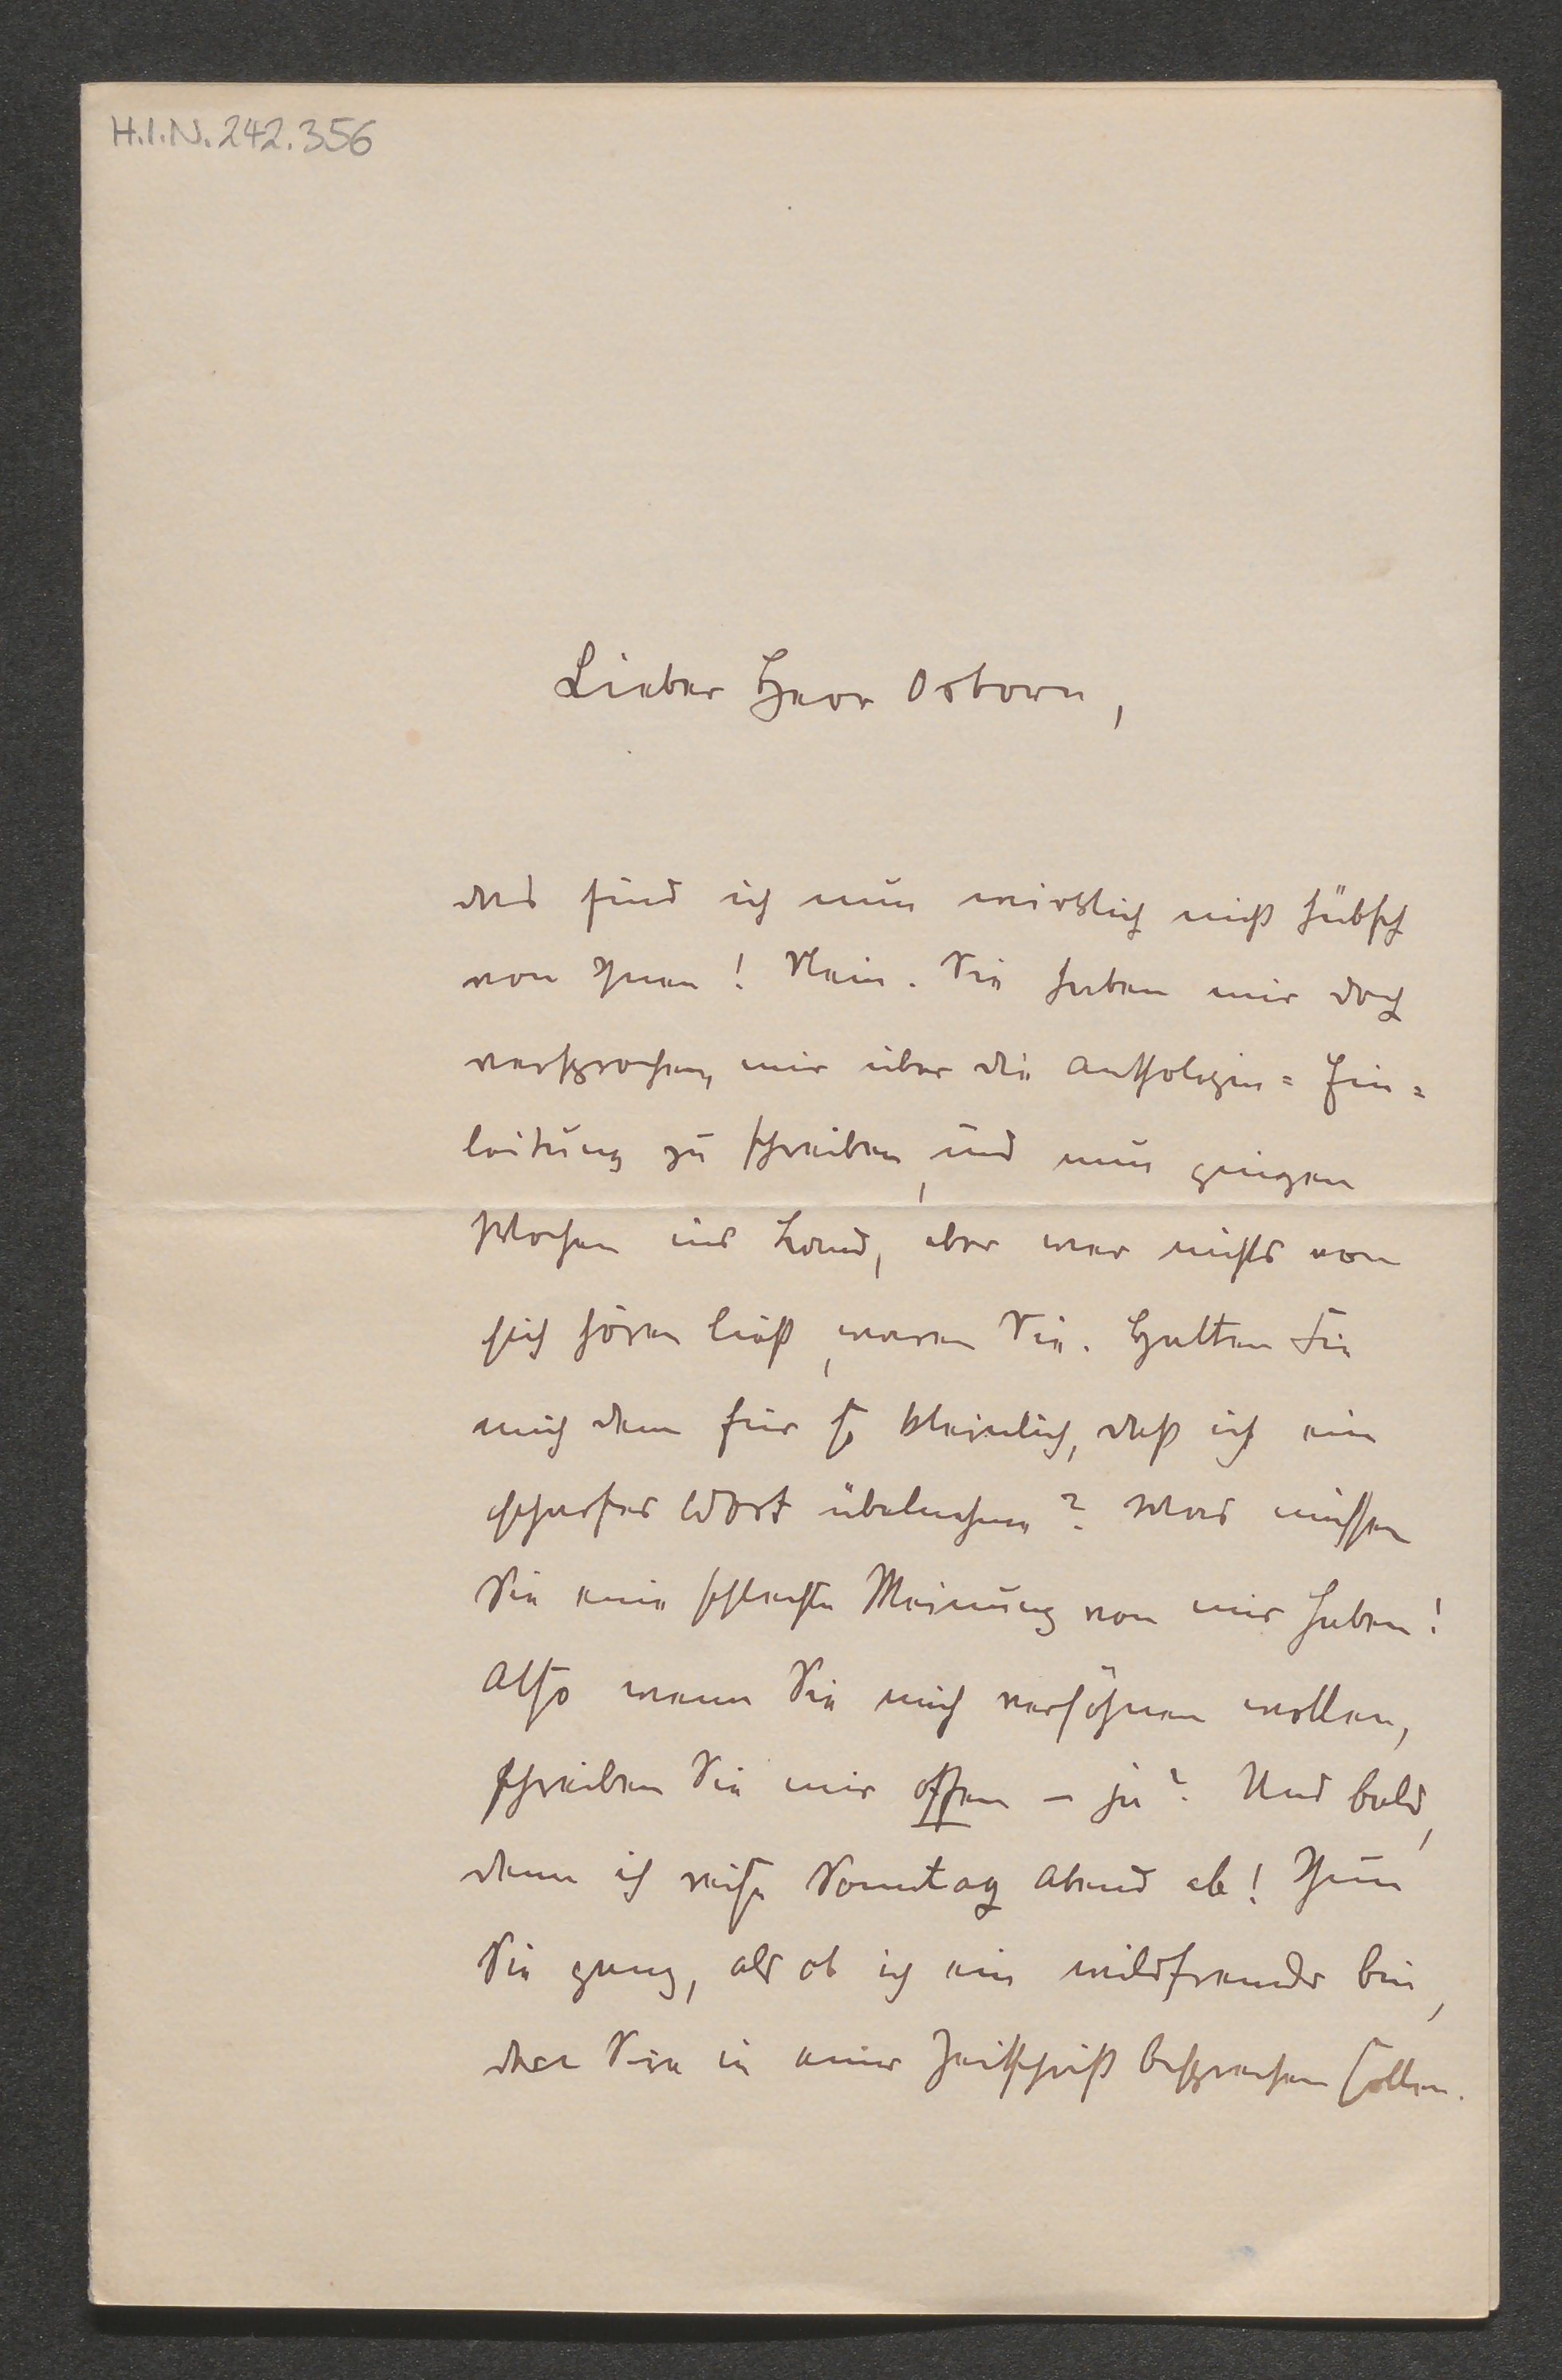 H.I.N. 242.356
Lieber Herr Osborn,
das find ich nun wirklich nicht hübsch
von Ihnen! Nein. Sie haben mir doch
versprochen, mir über die Anthologien-Ein-
leitung zu schreiben, und nun gingen
Wochen ins Land, aber wer nichts von
sich hören ließ, waren Sie. Halten Sie
mich denn für so kleinlich, daß ich ein
scharfes Wort übelnehme? Was müssen
Sie eine schlechte Meinung von mir haben!
Also wenn Sie mich versöhnen wollen,
schreiben Sie mir offen – ja? Und bald,
denn ich reise Sonntag Abend ab! Thun
Sie ganz, als ob ich ein wildfremder bin,
den Sie in einer Zeitschrift besprechen sollen.